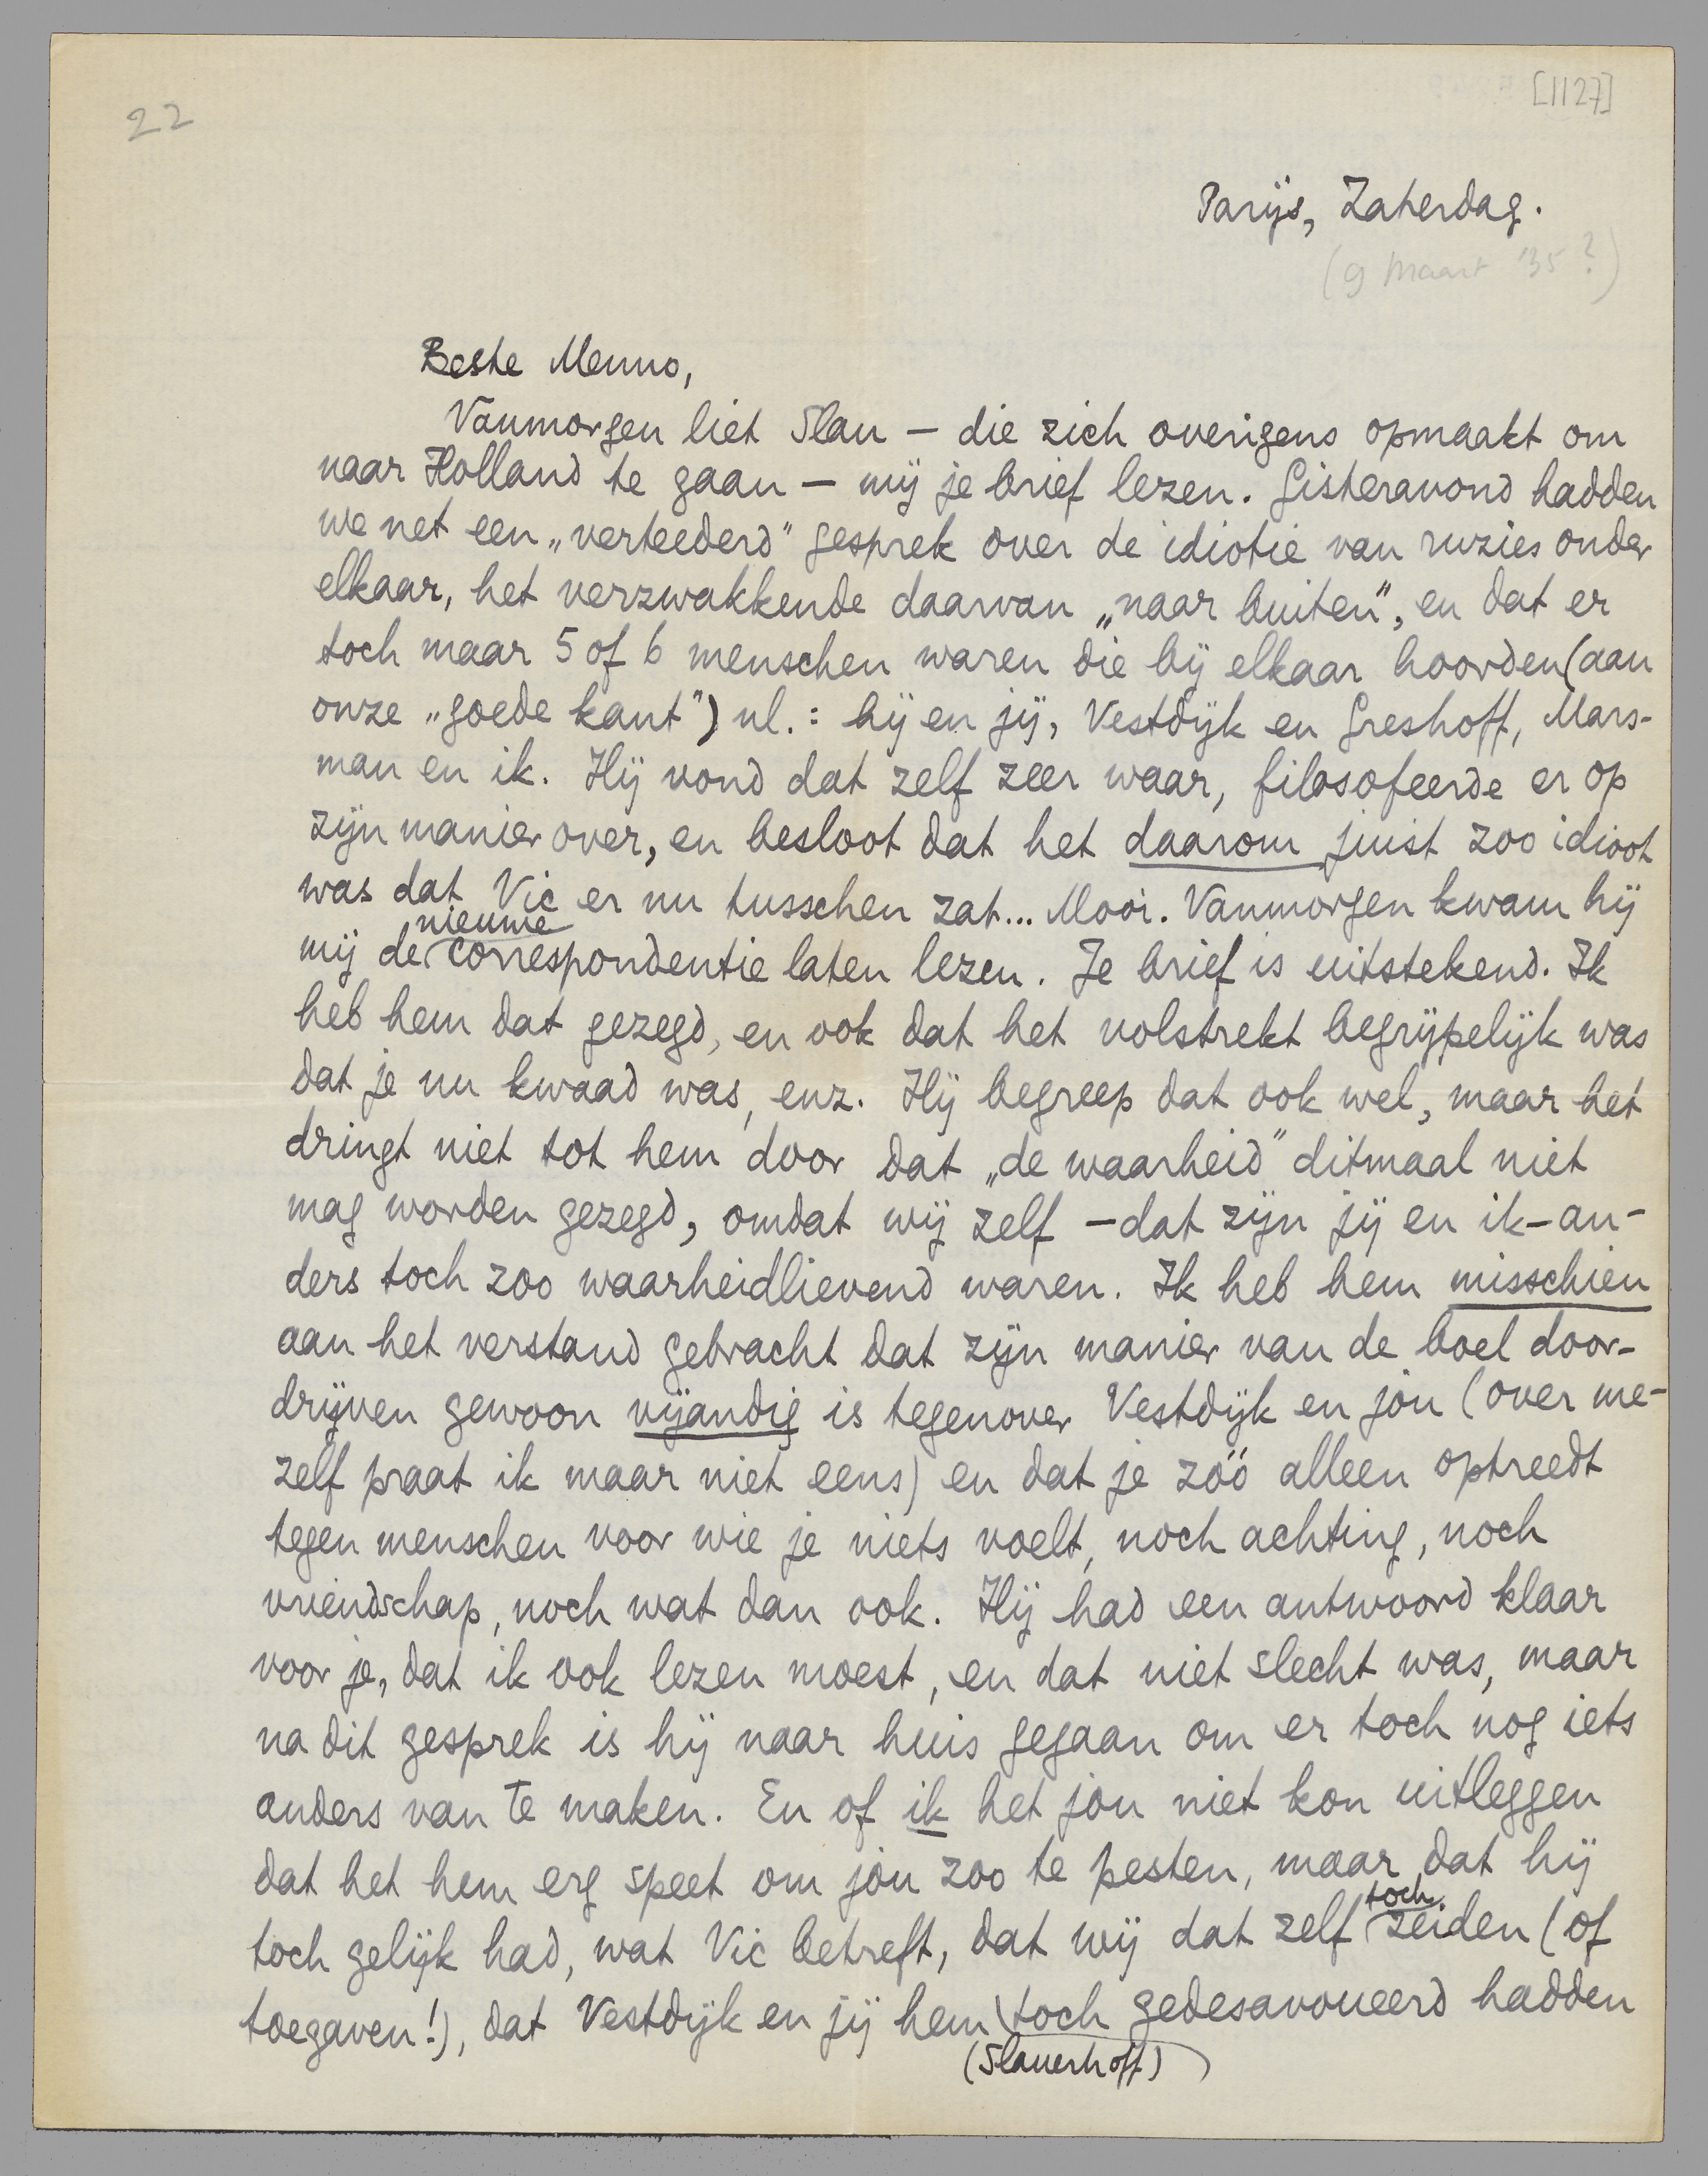 22
[1127]
Parijs, Zaterdag.
(9 Maart '35?)
Beste Menno,
Vanmorgen liet Slau — die zich overigens opmaakt om
naar Holland te gaan — mij je brief lezen. Gisteravond hadden
we net een „verteederd" gesprek over de idiotie van ruzies onder
elkaar, het verzwakkende daarvan „naar buiten", en dat er
toch maar 5 of 6 menschen waren die bij elkaar hoorden (aan
onze „goede kant") nl.: hij en jij, Vestdijk en Greshoff, Mars-
man en ik. Hij vond dat zelf zeer waar, filosofeerde er op
zijn manier over, en besloot dat het daarom juist zoo idioot
was dat Vic er nu tusschen zat... Mooi. Vanmorgen kwam hij
mij de nieuwe correspondentie laten lezen. Je brief is uitstekend. Ik
heb hem dat gezegd, en ook dat het volstrekt begrijpelijk was
dat je nu kwaad was, enz. Hij begreep dat ook wel, maar het
dringt niet tot hem door dat „de waarheid" ditmaal niet
mag worden gezegd, omdat wij zelf — dat zijn jij en ik — an-
ders toch zoo waarheidlievend waren. Ik heb hem misschien
aan het verstand gebracht dat zijn manier van de boel door-
drijven gewoon vijandig is tegenover Vestdijk en jou (over me-
zelf praat ik maar niet eens) en dat je zóó alleen optreedt
tegen menschen voor wie je niets voelt, noch achting, noch
vriendschap, noch wat dan ook. Hij had een antwoord klaar
voor je, dat ik ook lezen moest, en dat niet slecht was, maar
na dit gesprek is hij naar huis gegaan om er toch nog iets
anders van te maken. En of ik het jou niet kon uitleggen
dat het hem erg speet om jòu zoo te pesten, maar dat hij
toch gelijk had, wat Vic betreft, dat wij dat zelf toch zeiden (of
toegaven!), dat Vestdijk en jij hem (Slauerhoff) toch gedesavoueerd hadden